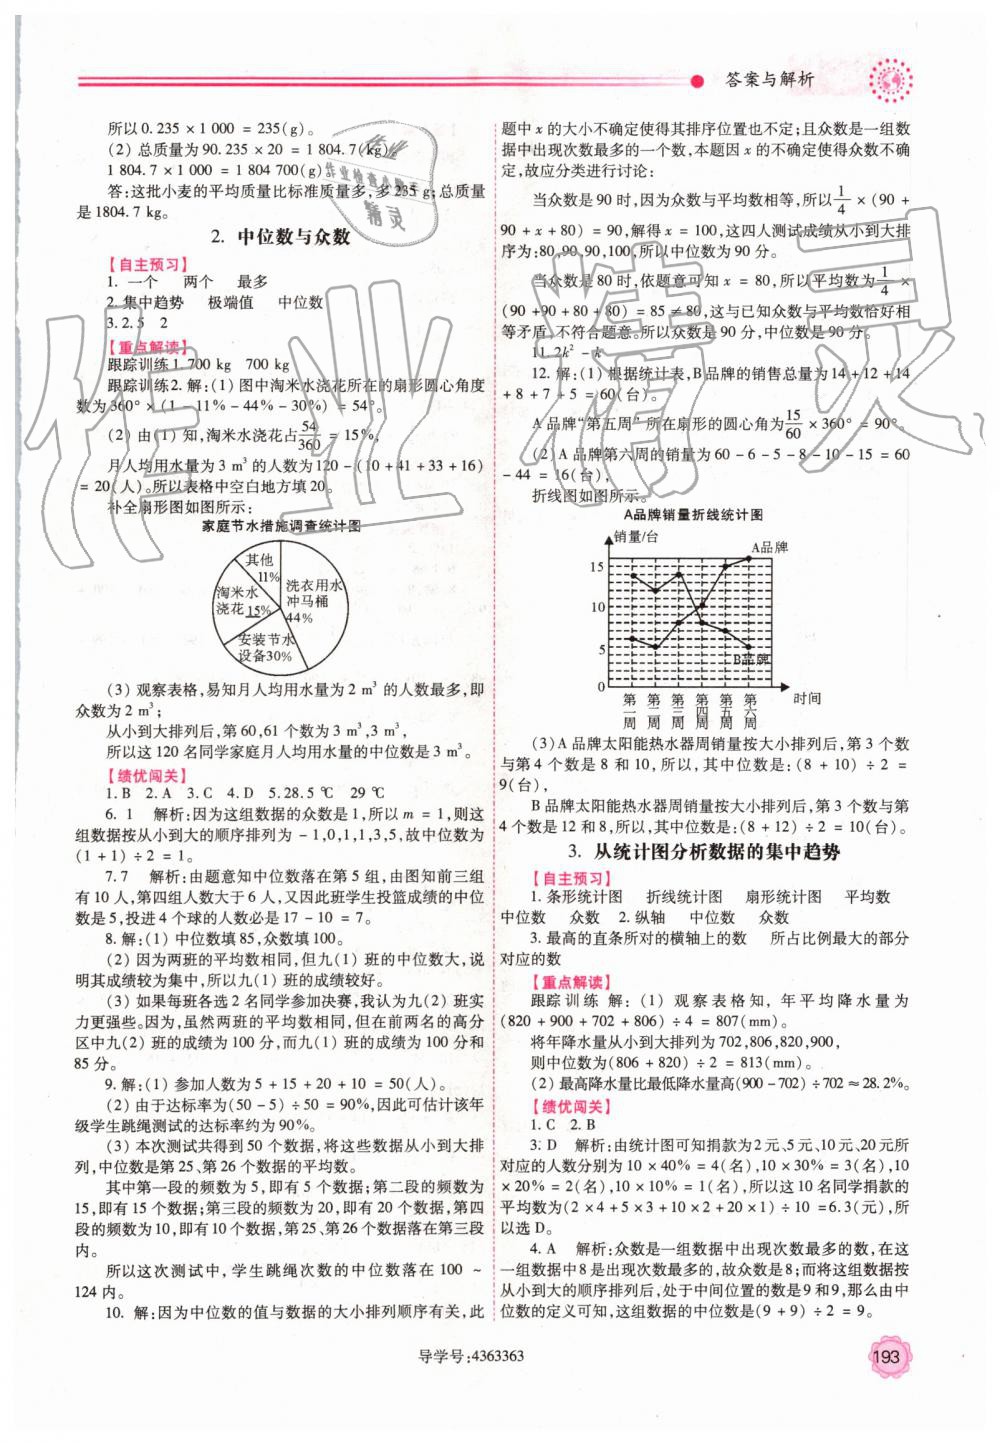 答案与解析
所以0.235×1 000=235(g)。
(2)总质量为90.235×20=1 804.7(kg)。
1 804.7×1 000=1 804 700(g)
答:这批小麦的平均质量比标准质量多,多235 g;总质量
是1804.7 kg。
2. 中位数与众数
【自主预习】
1. 一个 两个 最多
2. 集中趋势 极端值 中位数
3. 2.5 2
【重点解读】
跟踪训练1. 700 kg 700 kg
跟踪训练2. 解:(1)图中淘米水浇花所在的扇形圆心角度
数为360°×(1-11%-44%-30%)=54°。
(2)由(1)知,淘米水浇花占54/360=15%,
月人均用水量为3 m³的人数为120-(10+41+33+16)
=20(人)。所以表格中空白地方填20。
补全扇形图如图所示:
家庭节水措施调查统计图
其他
11%
洗衣用水
冲马桶
44%
淘米水
浇花 15%
安装节水
设备30%
(3)观察表格,易知月人均用水量为2 m³的人数最多,即
众数为2 m³;
从小到大排列后,第60,61个数为3 m³,3 m³,
所以这120名同学家庭月人均用水量的中位数是3 m³。
【绩优闯关】
1. B 2. A 3. C 4. D 5. 28.5 ℃ 29 ℃
6. 1 解析:因为这组数据的众数是1,所以m=1,则这
组数据按从小到大的顺序排列为-1,0,1,1,3,5,故中位数为
(1+1)÷2=1。
7. 7 解析:由题意知中位数落在第5组,由图知前三组
有10人,第四组人数大于6人,又因此班学生投篮成绩的中位
数是5,投进4个球的人数必是17-10=7。
8. 解:(1)中位数填85,众数填100。
(2)因为两班的平均数相同,但九(1)班的中位数大,说
明其成绩较为集中,所以九(1)班的成绩较好。
(3)如果每班各选2名同学参加决赛,我认为九(2)班实
力更强些。因为,虽然两班的平均数相同,但在前两名的高分
区中九(2)班的成绩为100分,而九(1)班的成绩为100分和
85分。
9. 解:(1)参加人数为5+15+20+10=50(人)。
(2)由于达标率为(50-5)÷50=90%,因此可估计该年
级学生跳绳测试的达标率约为90%。
(3)本次测试共得到50个数据,将这些数据从小到大排
列,中位数是第25、第26个数据的平均数。
其中第一段的频数为5,即有5个数据;第二段的频数为
15,即有15个数据;第三段的频数为20,即有20个数据,第四
段的频数为10,即有10个数据,第25、第26个数据落在第三段
内。
所以这次测试中,学生跳绳次数的中位数落在100~
124内。
10. 解:因为中位数的值与数据的大小排列顺序有关,此
题中x的大小不确定使得其排序位置也不定;且众数是一组数
据中出现次数最多的一个数,本题因x的不确定使得众数不确
定,故应分类进行讨论:
当众数是90时,因为众数与平均数相等,所以1/4×(90+
90+x+80)=90,解得x=100,这四人测试成绩从小到大排
序为:80,90,90,100,所以中位数为90分。
当众数是80时,依题意可知x=80,所以平均数为1/4×
(90+90+80+80)=85≠80,这与已知众数与平均数恰好相
等矛盾,不符合题意。所以众数是90分,中位数是90分。
11. 2k²-k
12. 解:(1)根据统计表,B品牌的销售总量为14+12+14
+8+7+5=60(台)。
A品牌“第五周”所在扇形的圆心角为15/60×360°=90°。
(2)A品牌第六周的销量为60-6-5-8-10-15=60
-44=16(台),
折线图如图所示。
A品牌销量折线统计图
销量/台
A品牌
15
10
5
B品牌
0
第一周 第二周 第三周 第四周 第五周 第六周 时间
(3)A品牌太阳能热水器周销量按大小排列后,第3个数
与第4个数是8和10,所以,其中位数是:(8+10)÷2=
9(台),
B品牌太阳能热水器周销量按大小排列后,第3个数与第
4个数是12和8,所以,其中位数是:(8+12)÷2=10(台)。
3. 从统计图分析数据的集中趋势
【自主预习】
1. 条形统计图 折线统计图 扇形统计图 平均数
中位数 众数 2. 纵轴 中位数 众数
3. 最高的直条所对的横轴上的数 所占比例最大的部分
对应的数
【重点解读】
跟踪训练 解:(1)观察表格知,年平均降水量为
(820+900+702+806)÷4=807(mm)。
将年降水量从小到大排列为702,806,820,900,
则中位数为(806+820)÷2=813(mm)。
(2)最高降水量比最低降水量高(900-702)÷702≈28.2%。
【绩优闯关】
1. C 2. B
3. D 解析:由统计图可知捐款为2元、5元、10元、20元所
对应的人数分别为10×40%=4(名),10×30%=3(名),10
×20%=2(名),10×10%=1(名),所以这10名同学捐款的
平均数为(2×4+5×3+10×2+20×1)÷10=6.3(元),所
以选D。
4. A 解析:众数是一组数据中出现次数最多的数,在这
一组数据中8是出现次数最多的,故众数是8;而将这组数据按
从小到大的顺序排列后,处于中间位置的数是9和9,那么由中
位数的定义可知,这组数据的中位数是(9+9)÷2=9。
导学号:4363363
193
作业精灵